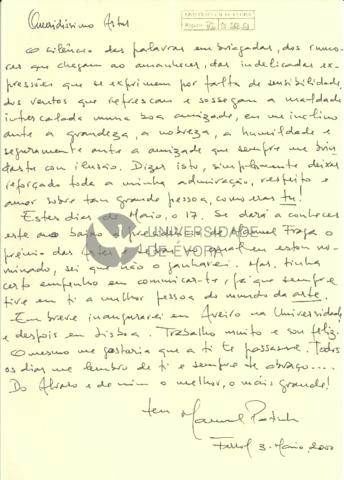 Queridíssimo Artur
O silêncio das palavras embriagadas, dos rumo-
res que chegam ao amanhecer, das indelicadas ex-
pressões que se exprimem por falta de sensibilidade,
dos ventos que refrescam e sossegam a maldade
intercalada numa boa amizade, eu me inclino
ante a grandeza, a nobreza, a humildade e
seguramente ante a amizade que sempre me brin-
daste com ilusão. Dizer isto, simplesmente deixar
reforçado toda a minha admiração, respeito e
amor sobre tão grande pessoa, como eras tu!
Estes dias de Maio, o 17. Se dará a conhecer
este ano baixo a presidência de Manuel Fraga o
prémio das Artes no qual eu estou no-
minado, sei que não o ganharei. Mas, tinha
certo empenho em comunicar-te, já que sempre
tive em ti a melhor pessoa do mundo da arte.
Em breve inaugurarei em Aveiro na Universidade
e despois em Lisboa. Trabalho muito e sou feliz.
O mesmo me gostaria que a ti te passasse. Todos
os dias me lembro de ti e sempre te abraço....
Do Alvaro e de mim o melhor, o mais grande!
teu Manuel
Ferrol 3. Maio, 2000
UNIVERSIDADE
DE ÉVORA